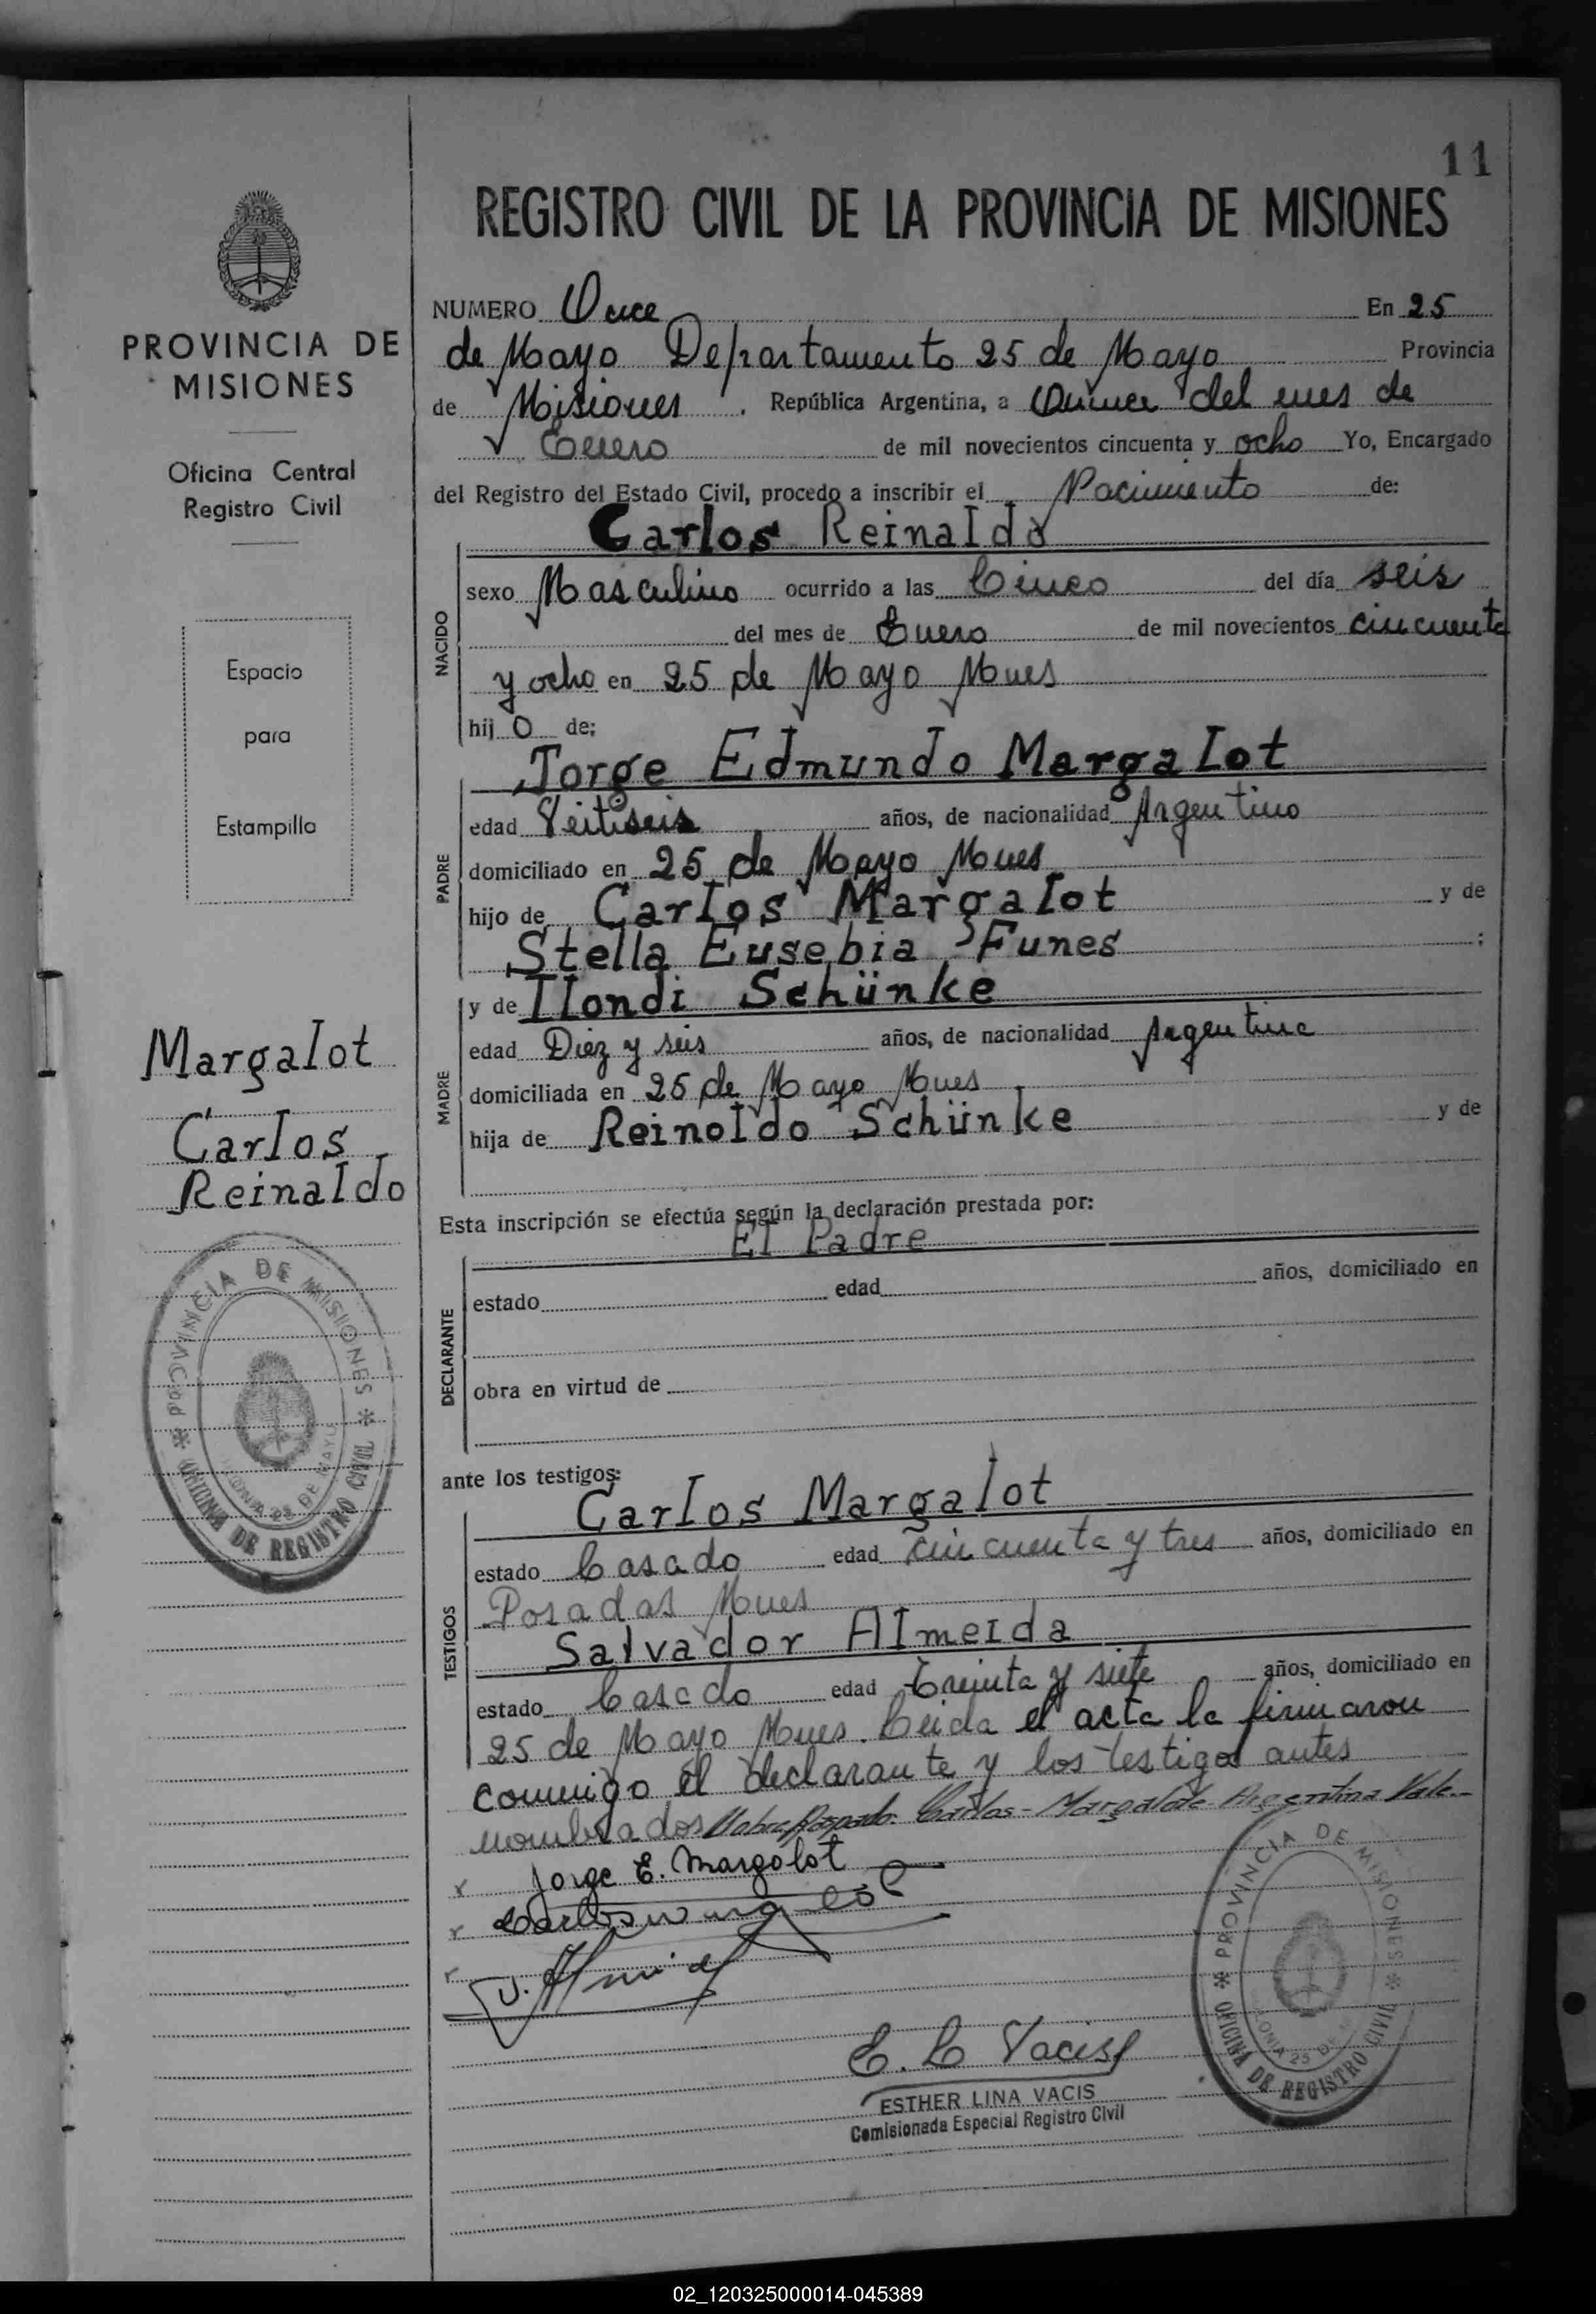 11
REGISTRO CIVIL DE LA PROVINCIA DE MISIONES
PROVINCIA DE
MISIONES
Oficina Central
Registro Civil
Espacio
para
Estampilla
Margalot
Carlos
Reinaldo
PROVINCIA DE MISIONES
COLONIA 25 DE MAYO
OFICINA DE REGISTRO CIVIL
NUMERO Once En 25
de Mayo Departamento 25 de Mayo Provincia
de Misiones . República Argentina, a Quince del mes de
Enero de mil novecientos cincuenta y ocho Yo, Encargado
del Registro del Estado Civil, procedo a inscribir el Nacimiento de:
Carlos Reinaldo
NACIDO
sexo Masculino ocurrido a las Cinco del día seis
del mes de Enero de mil novecientos cincuenta
y ocho en 25 de Mayo Mnes
hij o de:
Jorge Edmundo Margalot
PADRE
edad Veitiseis años, de nacionalidad Argentino
domiciliado en 25 de Mayo Mnes
hijo de Carlos Margalot y de
Stella Eusebia Funes ;
y de Ilondi Schünke
MADRE
edad Diez y seis años, de nacionalidad Argentina
domiciliada en 25 de Mayo Mnes
hija de Reinoldo Schünke y de
Esta inscripción se efectúa según la declaración prestada por:
El Padre
DECLARANTE
estado edad años, domiciliado en
obra en virtud de
ante los testigos:
Carlos Margalot
TESTIGOS
estado Casado edad cincuenta y tres años, domiciliado en
Posadas Mnes
Salvador Almeida
estado Casado edad treinta y siete años, domiciliado en
25 de Mayo Mnes. Leida el acta la firmaron
conmigo el declarante y los testigos antes
nombrados Carlos - Margalot - Argentina Vale.-
Jorge E. Margalot
E. L Vacis
ESTHER LINA VACIS
Comisionada Especial Registro Civil
PROVINCIA DE MISIONES
COLONIA 25 DE
OFICINA DE REGISTRO CIVIL
02_120325000014-045389